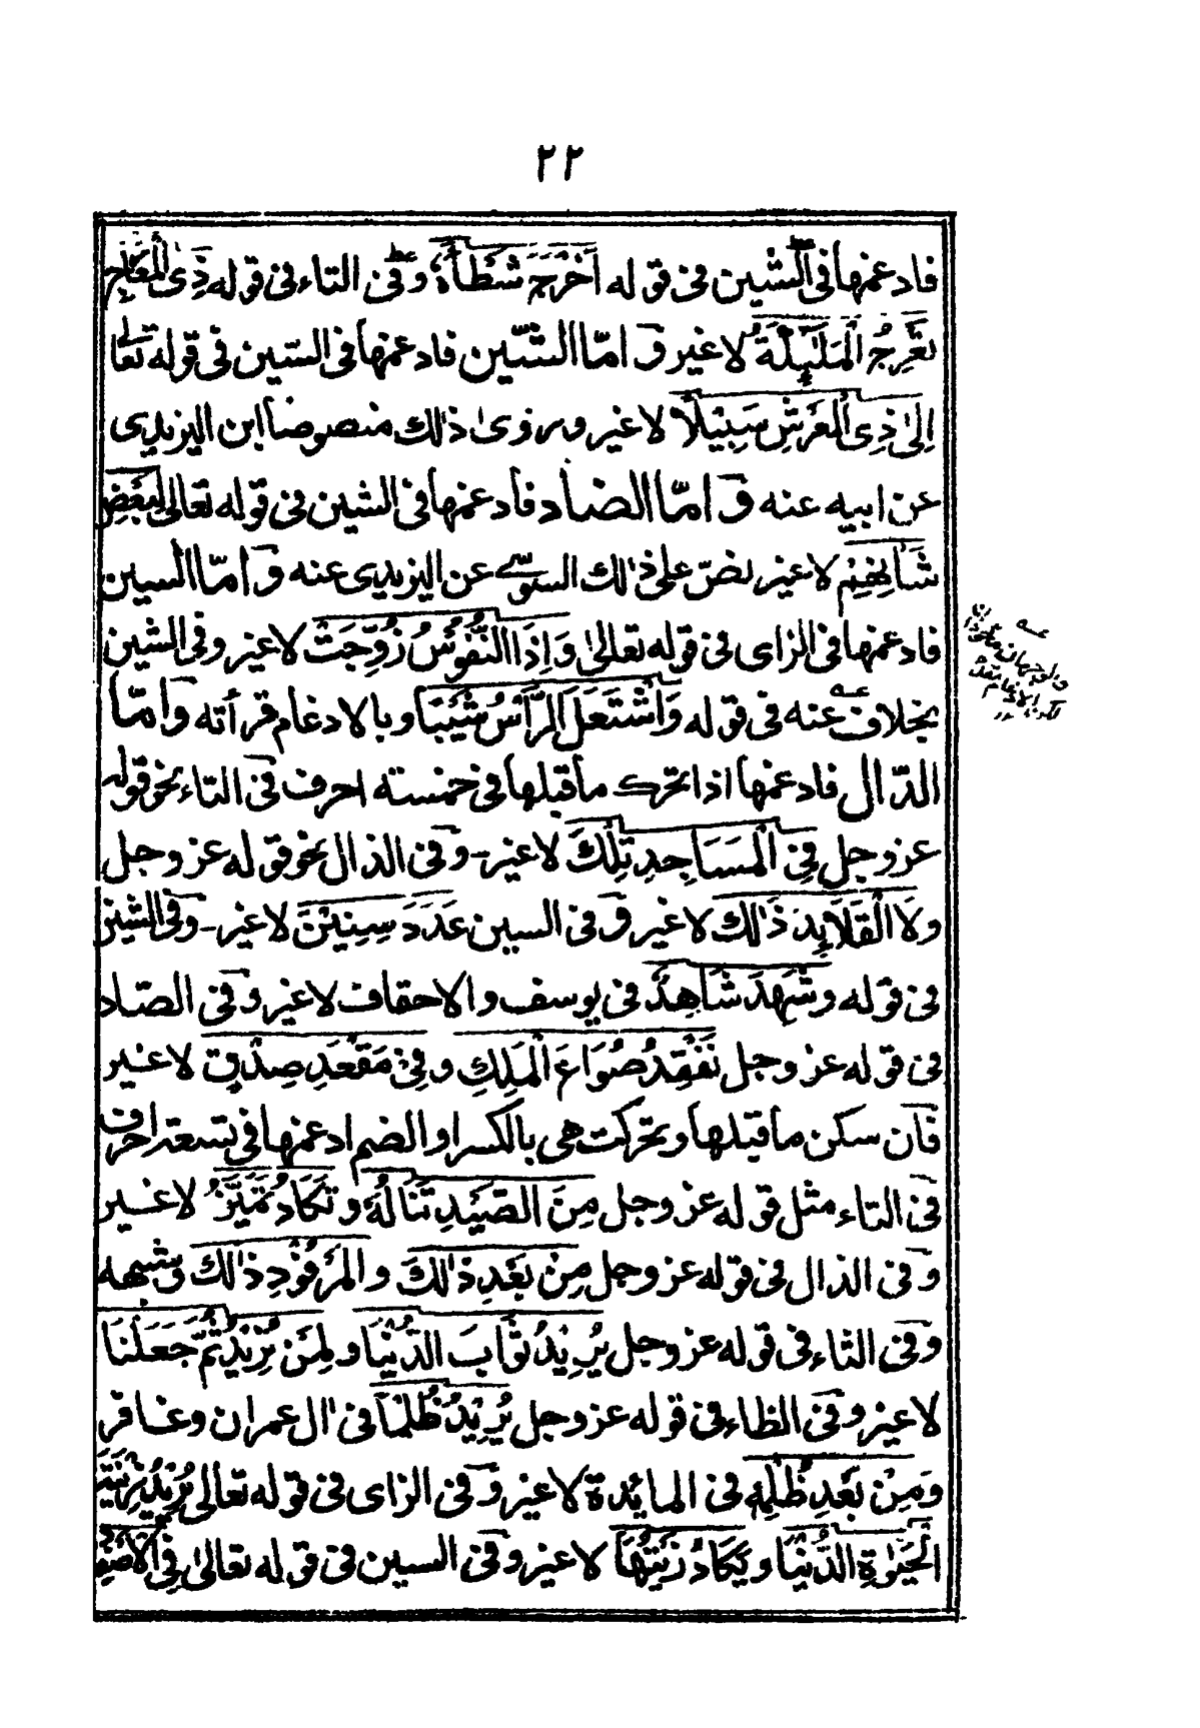 ٢٢
فادغمها فى الشين فى قوله اَخْرَجَ شَطْأَهٗ وفى التاء فى قوله ذِى الْمَعَارِجِ
تَعْرُجُ الْمَلٰٓئِكَةُ لا غير و امّا الشّين فادغمها فى السّين فى قوله تعالىٰ
اِلىٰ ذِى الْعَرْشِ سَبِيْلًا لا غير وروىٰ ذٰلك منصوصًا ابن اليزيدى
عن ابيه عنه و امّا الضاد فادغمها فى الشين فى قوله تعالىٰ لِبَعْضِ
شَاْنِهِمْ لا غير نصّ علىٰ ذٰلك السوسى عن اليزيدى عنه و امّا السين
فادغمها فى الزاى فى قوله تعالىٰ وَاِذَا النُّفُوْسُ زُوِّجَتْ لا غير وفى الشين
بخلاف عنه فى قوله وَاشْتَعَلَ الرَّاْسُ شَيْبًا وبالادغام قرأته و امّا
الدّال فادغمها اذا تحرك ما قبلها فى خمسة احرف فى التاء نحو قوله
عز وجل فِى الْمَسَاجِدِ تِلْكَ لا غير - وفى الذال نحو قوله عز وجل
ولَا الْقَلَآئِدَ ذٰلِكَ لا غير و فى السين عَدَدَ سِنِيْنَ لا غير - وفى الشين
فى قوله وشَهِدَ شَاهِدٌ فى يوسف والاحقاف لا غير وفى الصّاد
فى قوله عز وجل نَفْقِدُ صُوَاعَ الْمَلِكِ وفِىْ مَقْعَدِ صِدْقٍ لا غير
فان سكن ما قبلها وتحركت هى بالكسر او الضم ادغمها فى تسعة احرف
فى التاء مثل قوله عز وجل مِنَ الصَّيْدِ تَنَالُهٗ و تَكَادُ تَمَيَّزُ لا غير
و فى الذال فى قوله عز وجل مِنْ بَعْدِ ذٰلِكَ و الْمَرْفُوْدِ ذٰلِكَ وشبهه
وفى الثاء فى قوله عز وجل يُرِيْدُ ثَوَابَ الدُّنْيَا و لِمَنْ نُّرِيْدُ ثُمَّ جَعَلْنَا
لا غير وفى الظاء فى قوله عز وجل يُرِيْدُ ظُلْمًا فى اٰل عمران وغافر
وَ مِنْ بَعْدِ ظُلْمِهٖ فى المائدة لا غير و فى الزاى فى قوله تعالىٰ تُرِيْدُ زِيْنَةَ
الْحَيٰوةِ الدُّنْيَا و يَكَادُ زَيْتُهَا لا غير و فى السين فى قوله تعالىٰ فِى الْاَصْفَا